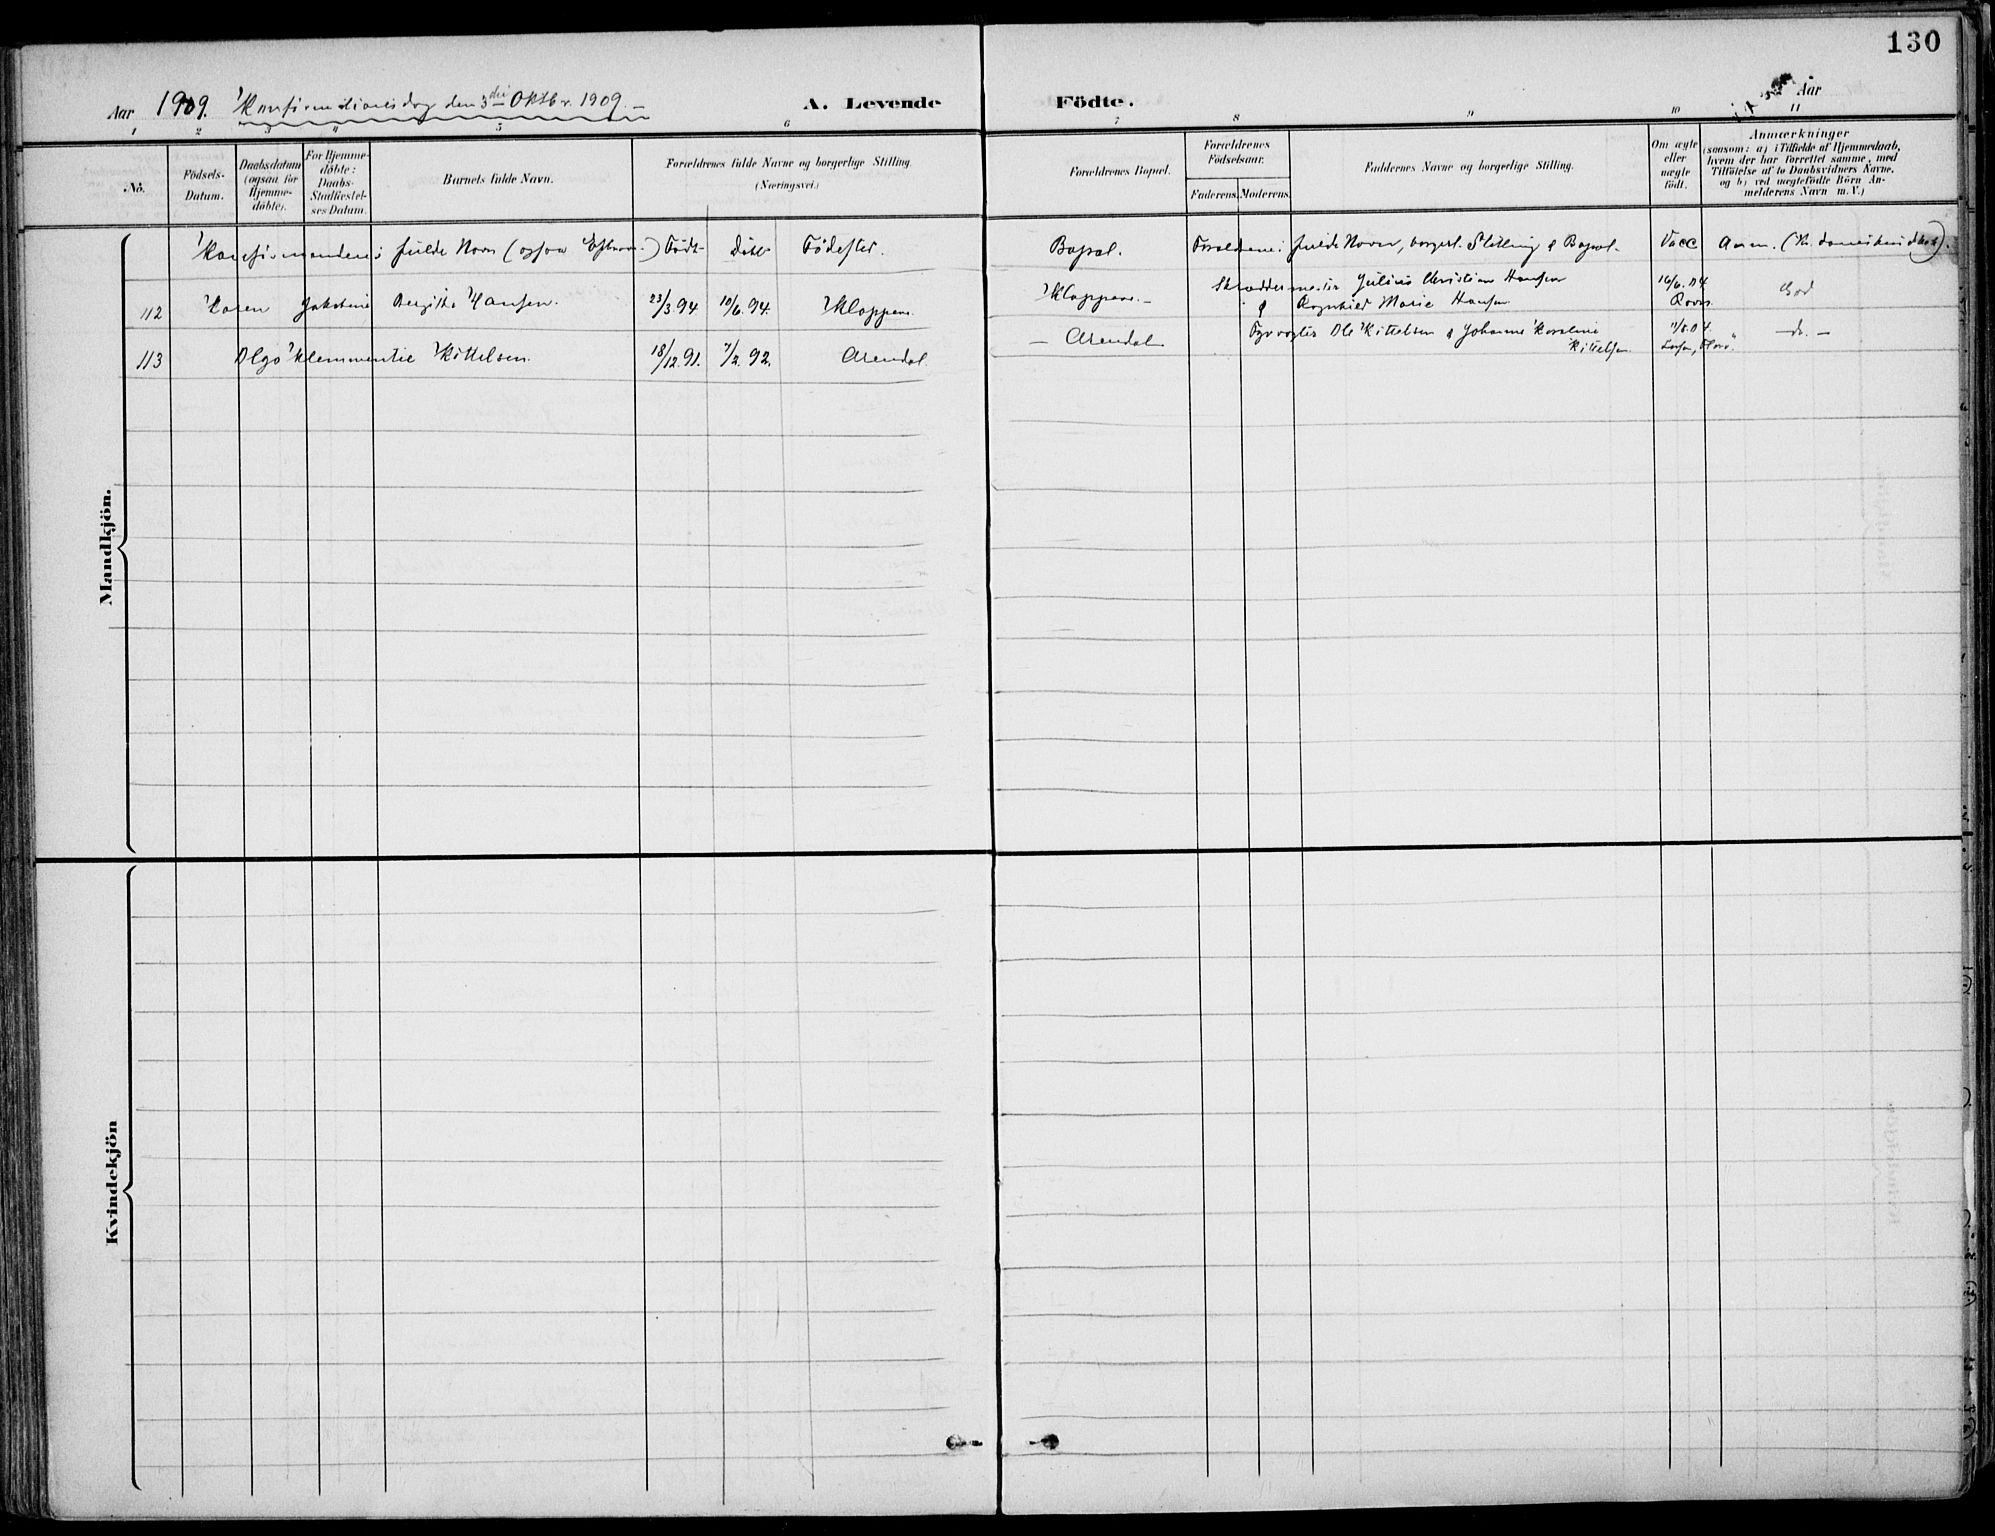 130
Aar 1909. Konfirmationsdag den 3die Oktbr. 1909. —
A. Levende Födte.
Aar
1 2 3 4 5 6 7 8 9 10 11
No.
Födsels-Datum.
Daabsdatum (ogsaa for Hjemme-döbte).
For Hjemme-döbte: Daabs-Stadfæstel-ses Datum.
Barnets fulde Navn.
Forældrenes fulde Navne og borgerlige Stilling. (Næringsvei.)
Forældrenes Bopæl.
Forældrenes Födselsaar.
Faderens. Moderens.
Faddernes Navne og borgerlige Stilling.
Om ægte eller uægte födt.
Anmærkninger
(saasom: a) i Tilfælde af Hjemmedaab,
hvem der har forrettet samme, med
Tilföielse af to Daabsvidners Navne,
og b) ved uægtefödte Börn An-
melderens Navn m. V.)
Konfirmandens fulde Navn (ogsaa Efternavn) Födt Döbt Födested. Bopæl. Forældrenes fulde Navn, borgerl. Stilling & Bopæl. Vacc Anm.
112 Karen Jakobine Bergithe Hansen. 23/3.94 10/6.94. Kloppene. Kloppene. — Skræddermester Julius Christian Hansen & Ragnhild Marie Hansen 16/6.04 God
113 Olga Klemmentie Kittelsen. 18/12.91. 7/2.92. Arendal. — Arendal — Fyrvogter Ole Kittelsen & Johanne Karoline Kittelsen. 11/5.04. — do. —
Mandkjön.
Kvindekjön